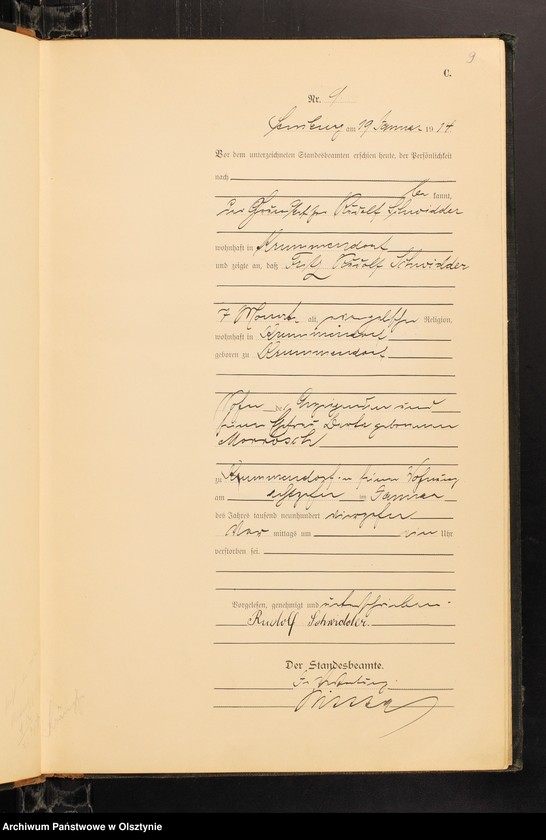 9
C.
Nr. 9
Sensburg am 19 Januar 1914.
Vor dem unterzeichneten Standesbeamten erschien heute, der Persönlichkeit
nach
be kannt,
der Rudolf Schwidder
wohnhaft in Krummendorf
und zeigte an, daß Fritz Rudolf Schwidder
7 Monat alt, evangelischer Religion,
wohnhaft in Krummendorf
geboren zu Krummendorf
Sohn des Anzeigenden und
seiner Ehefrau geborenen
zu Krummendorf in seiner Wohnung
am achtzehnten Januar
des Jahres tausend neunhundert vierzehn
Vor mittags um ein Uhr
verstorben sei.
Vorgelesen, genehmigt und unterschrieben
Rudolf Schwidder.
Der Standesbeamte.
In Vertretung.
Archiwum Państwowe w Olsztynie